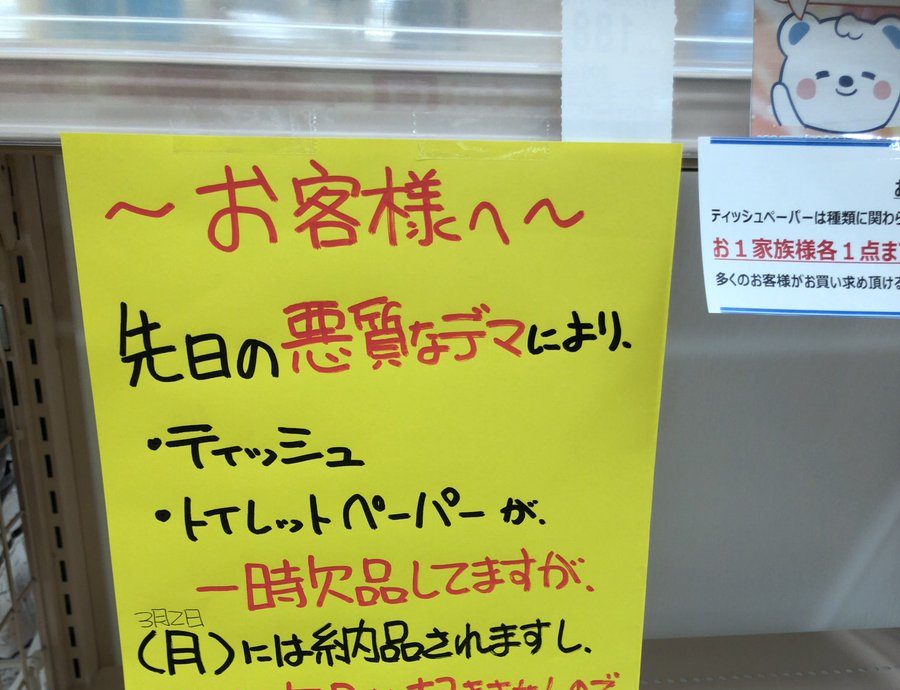 ～お客様へ～
先日の悪質なデマにより、
・ティッシュ
・トイレットペーパーが、
一時欠品してますが、
3月2日
(月)には納品されますし、
ティッシュペーパーは種類に関わら
お1家族様各1点ま
多くのお客様がお買い求め頂ける